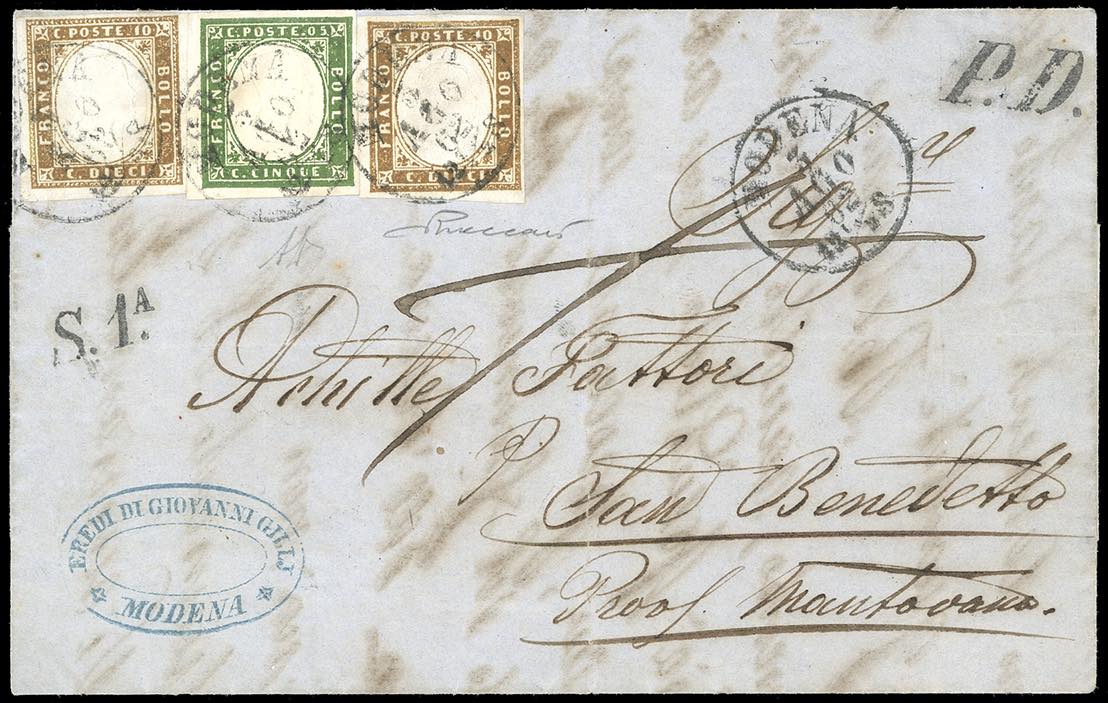 C. POSTE. 10
FRANCO
BOLLO
C. DIECI
C. POSTE. 05
FRANCO
BOLLO
C. CINQUE
C. POSTE. 10
FRANCO
BOLLO
C. DIECI
P.D.
MODENA
AGO
S. 1.A
Achille Fattori
P.
San Benedetto
Prov. Mantovano.
EREDI DI GIOVANNI GILLJ
MODENA